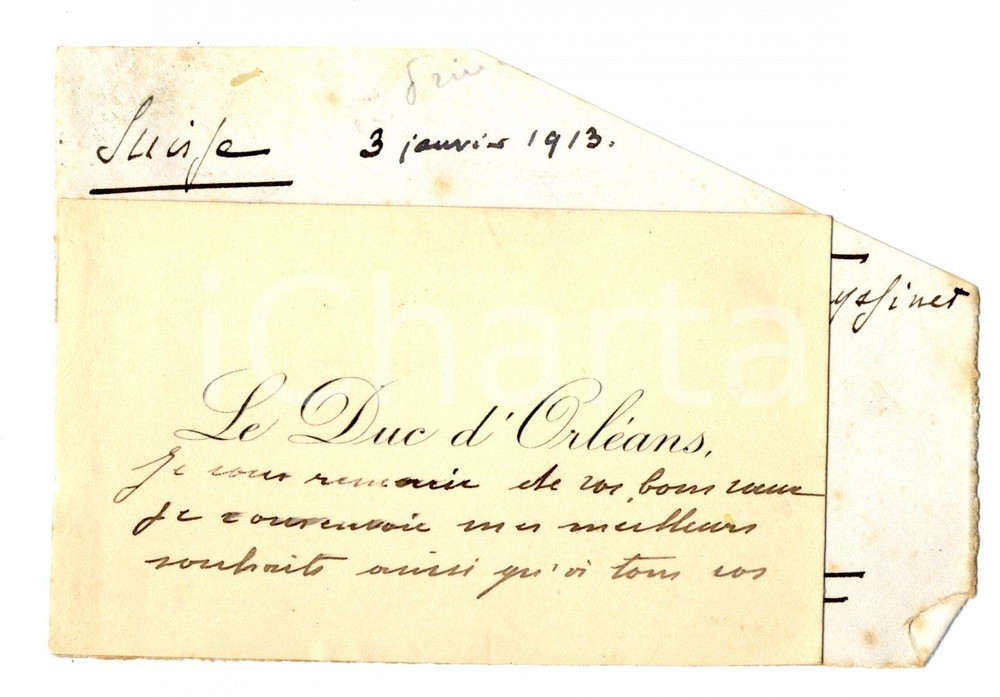 Suisse 3 janvier 1913.
yssinet
iCharta
Le Duc d'Orléans,
je vous remercie de vos bons vœux
je vous envoie mes meilleurs
souhaits ainsi qu'à tous vos